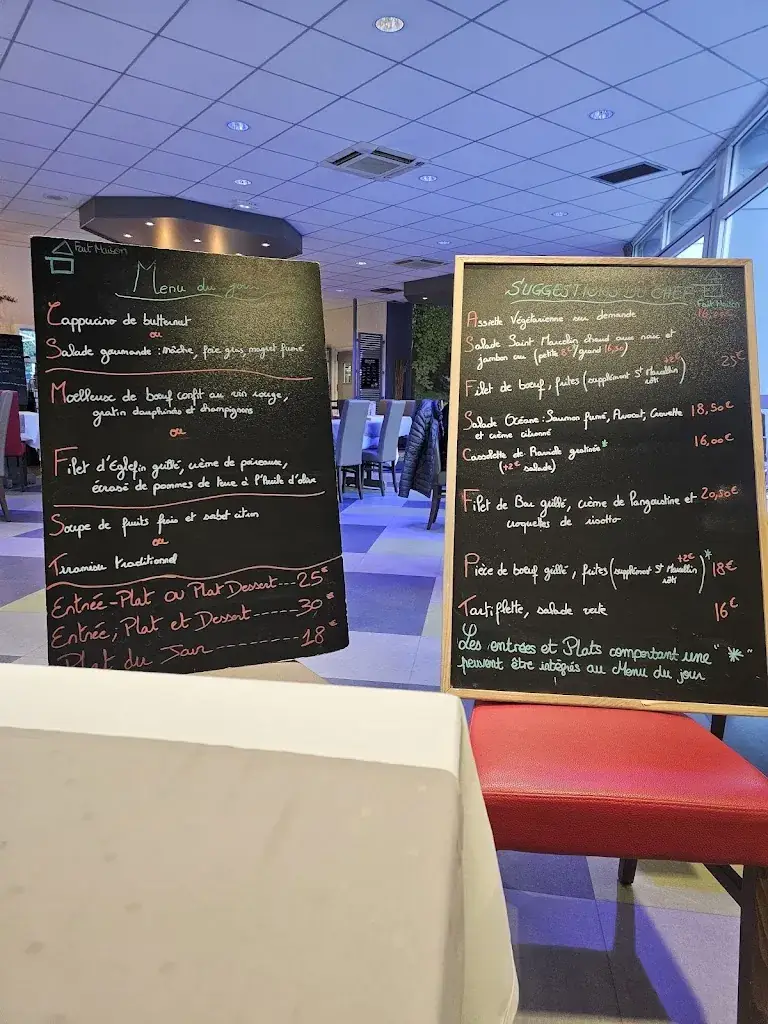 Fait Maison
Menu du jour
Cappucino de butternut
ou
Salade gourmande : mâche, foie gras, magret fumé
Moelleux de bœuf confit au vin rouge,
gratin dauphinois et champignons
ou
Filet d'Eglefin grillé, crème de poireaux,
écrasé de pommes de terre à l'huile d'olive
Soupe de fruits frais et sabet citron
ou
Tiramisu traditionnel
Entrée-Plat ou Plat Dessert---25€
Entrée, Plat et Dessert------30€
Plat du Jour------18€
SUGGESTIONS DE CHEF
Fait Maison
Assiette Végétarienne sur demande 16,00€
Salade Saint Marcellin chaud aux noix et
jambon cru (petite 8€/grand 16,50)
Filet de bœuf, frites (supplément St Marcellin +2€ rôti) 25€
Salade Océane : Saumon fumé, Avocat, Crevette 18,50€
et crème citronné
Cassolette de Raviole gratinée* 16,00€
(+2€ salade)
Filet de Bar grillé, crème de Langoustine et 20,50€
croquettes de risotto
Pièce de bœuf grillé, frites (supplément St Marcellin +2€ rôti)* 18€
Tartiflette, salade verte 16€
Les entrées et Plats comportant une "*"
peuvent être intégrés au Menu du jour